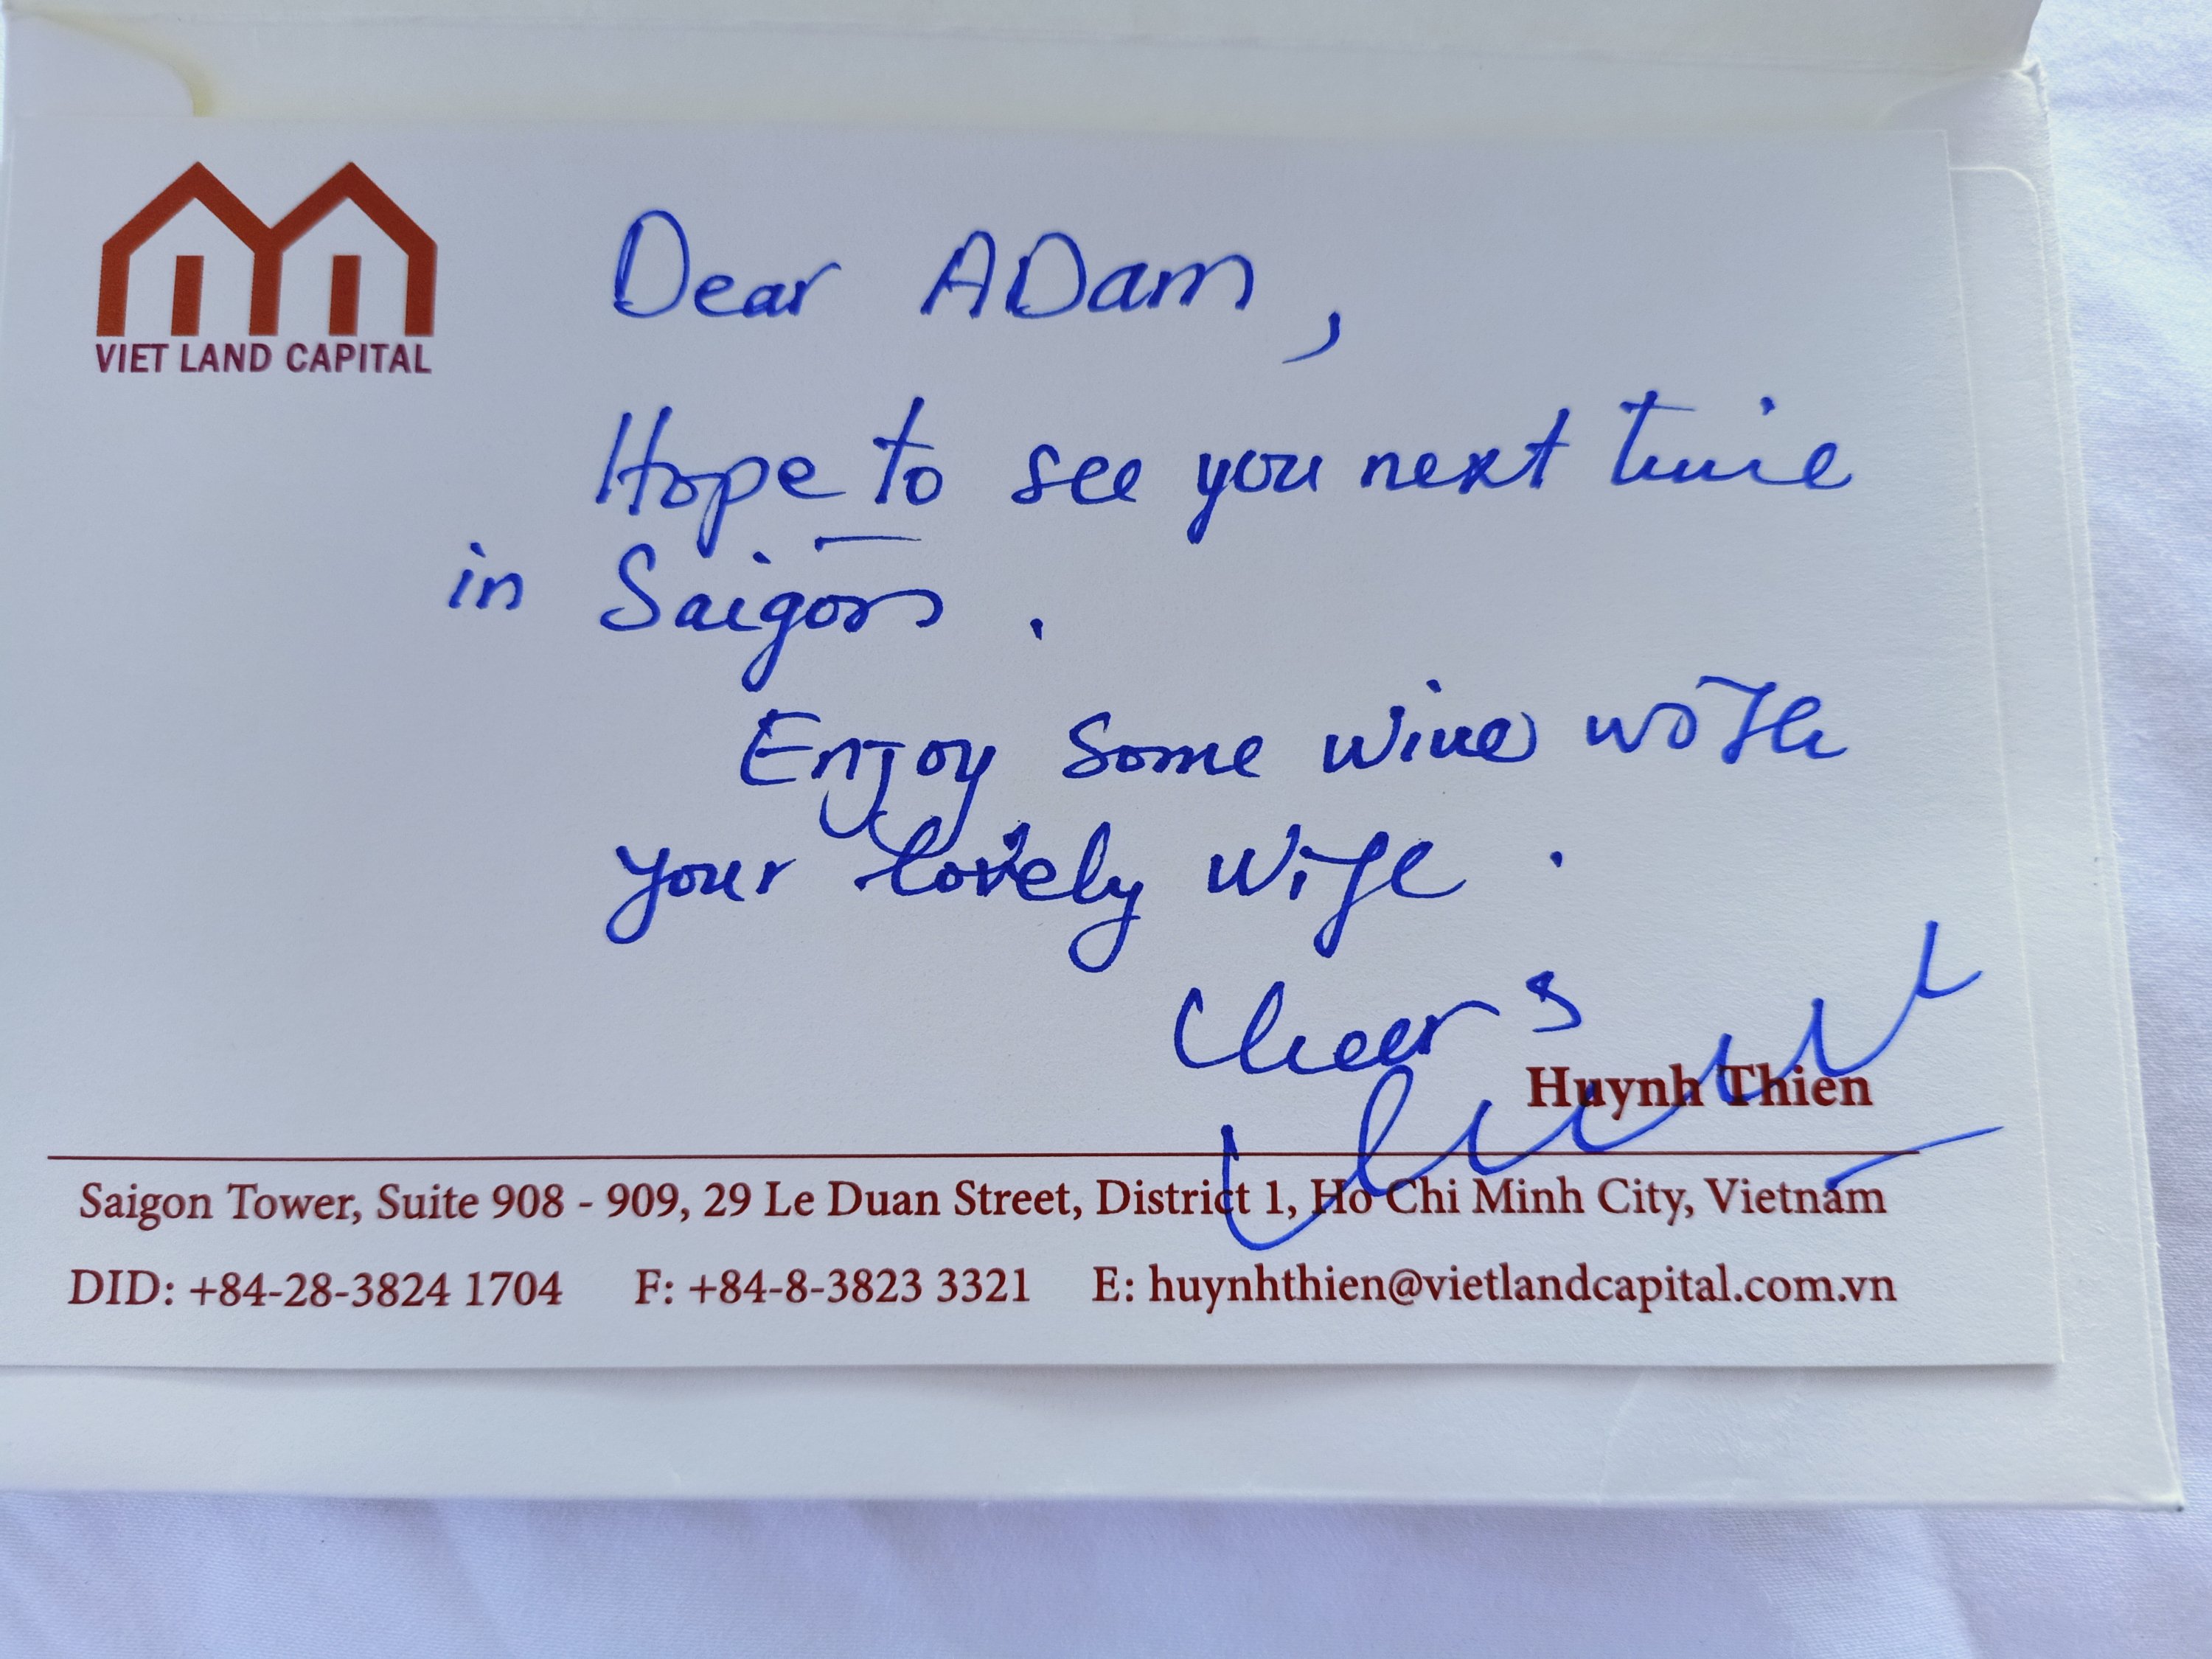 VIET LAND CAPITAL
Dear ADam,
Hope to see you next time
in Saigon.
Enjoy some wine with
your lovely wife.
Cheers
Huynh Thien
Saigon Tower, Suite 908 - 909, 29 Le Duan Street, District 1, Ho Chi Minh City, Vietnam
DID: +84-28-3824 1704 F: +84-8-3823 3321 E: huynhthien@vietlandcapital.com.vn